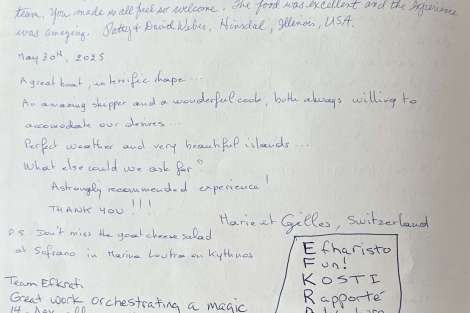 team, you made us all feel so welcome. The food was excellent and the experience
was amazing. Patty & David Weber, Hinsdal, Illenois, USA.
May 30th, 2025
A great boat, in terrific shape...
An amazing skipper and a wonderful cook, both always willing to
accomodate our desires...
Perfect weather and very beautiful islands...
What else could we ask for?
A strongly recommended experience!
THANK YOU!!!
Marie et Gilles, Switzerland
P.S. Don't miss the goat cheese salad
at Sofrano in Marina Loutra on Kythnos
Efharisto
Fun!
KOSTI
Rapporté
Team Efkrati
Great work orchestrating a magic
14